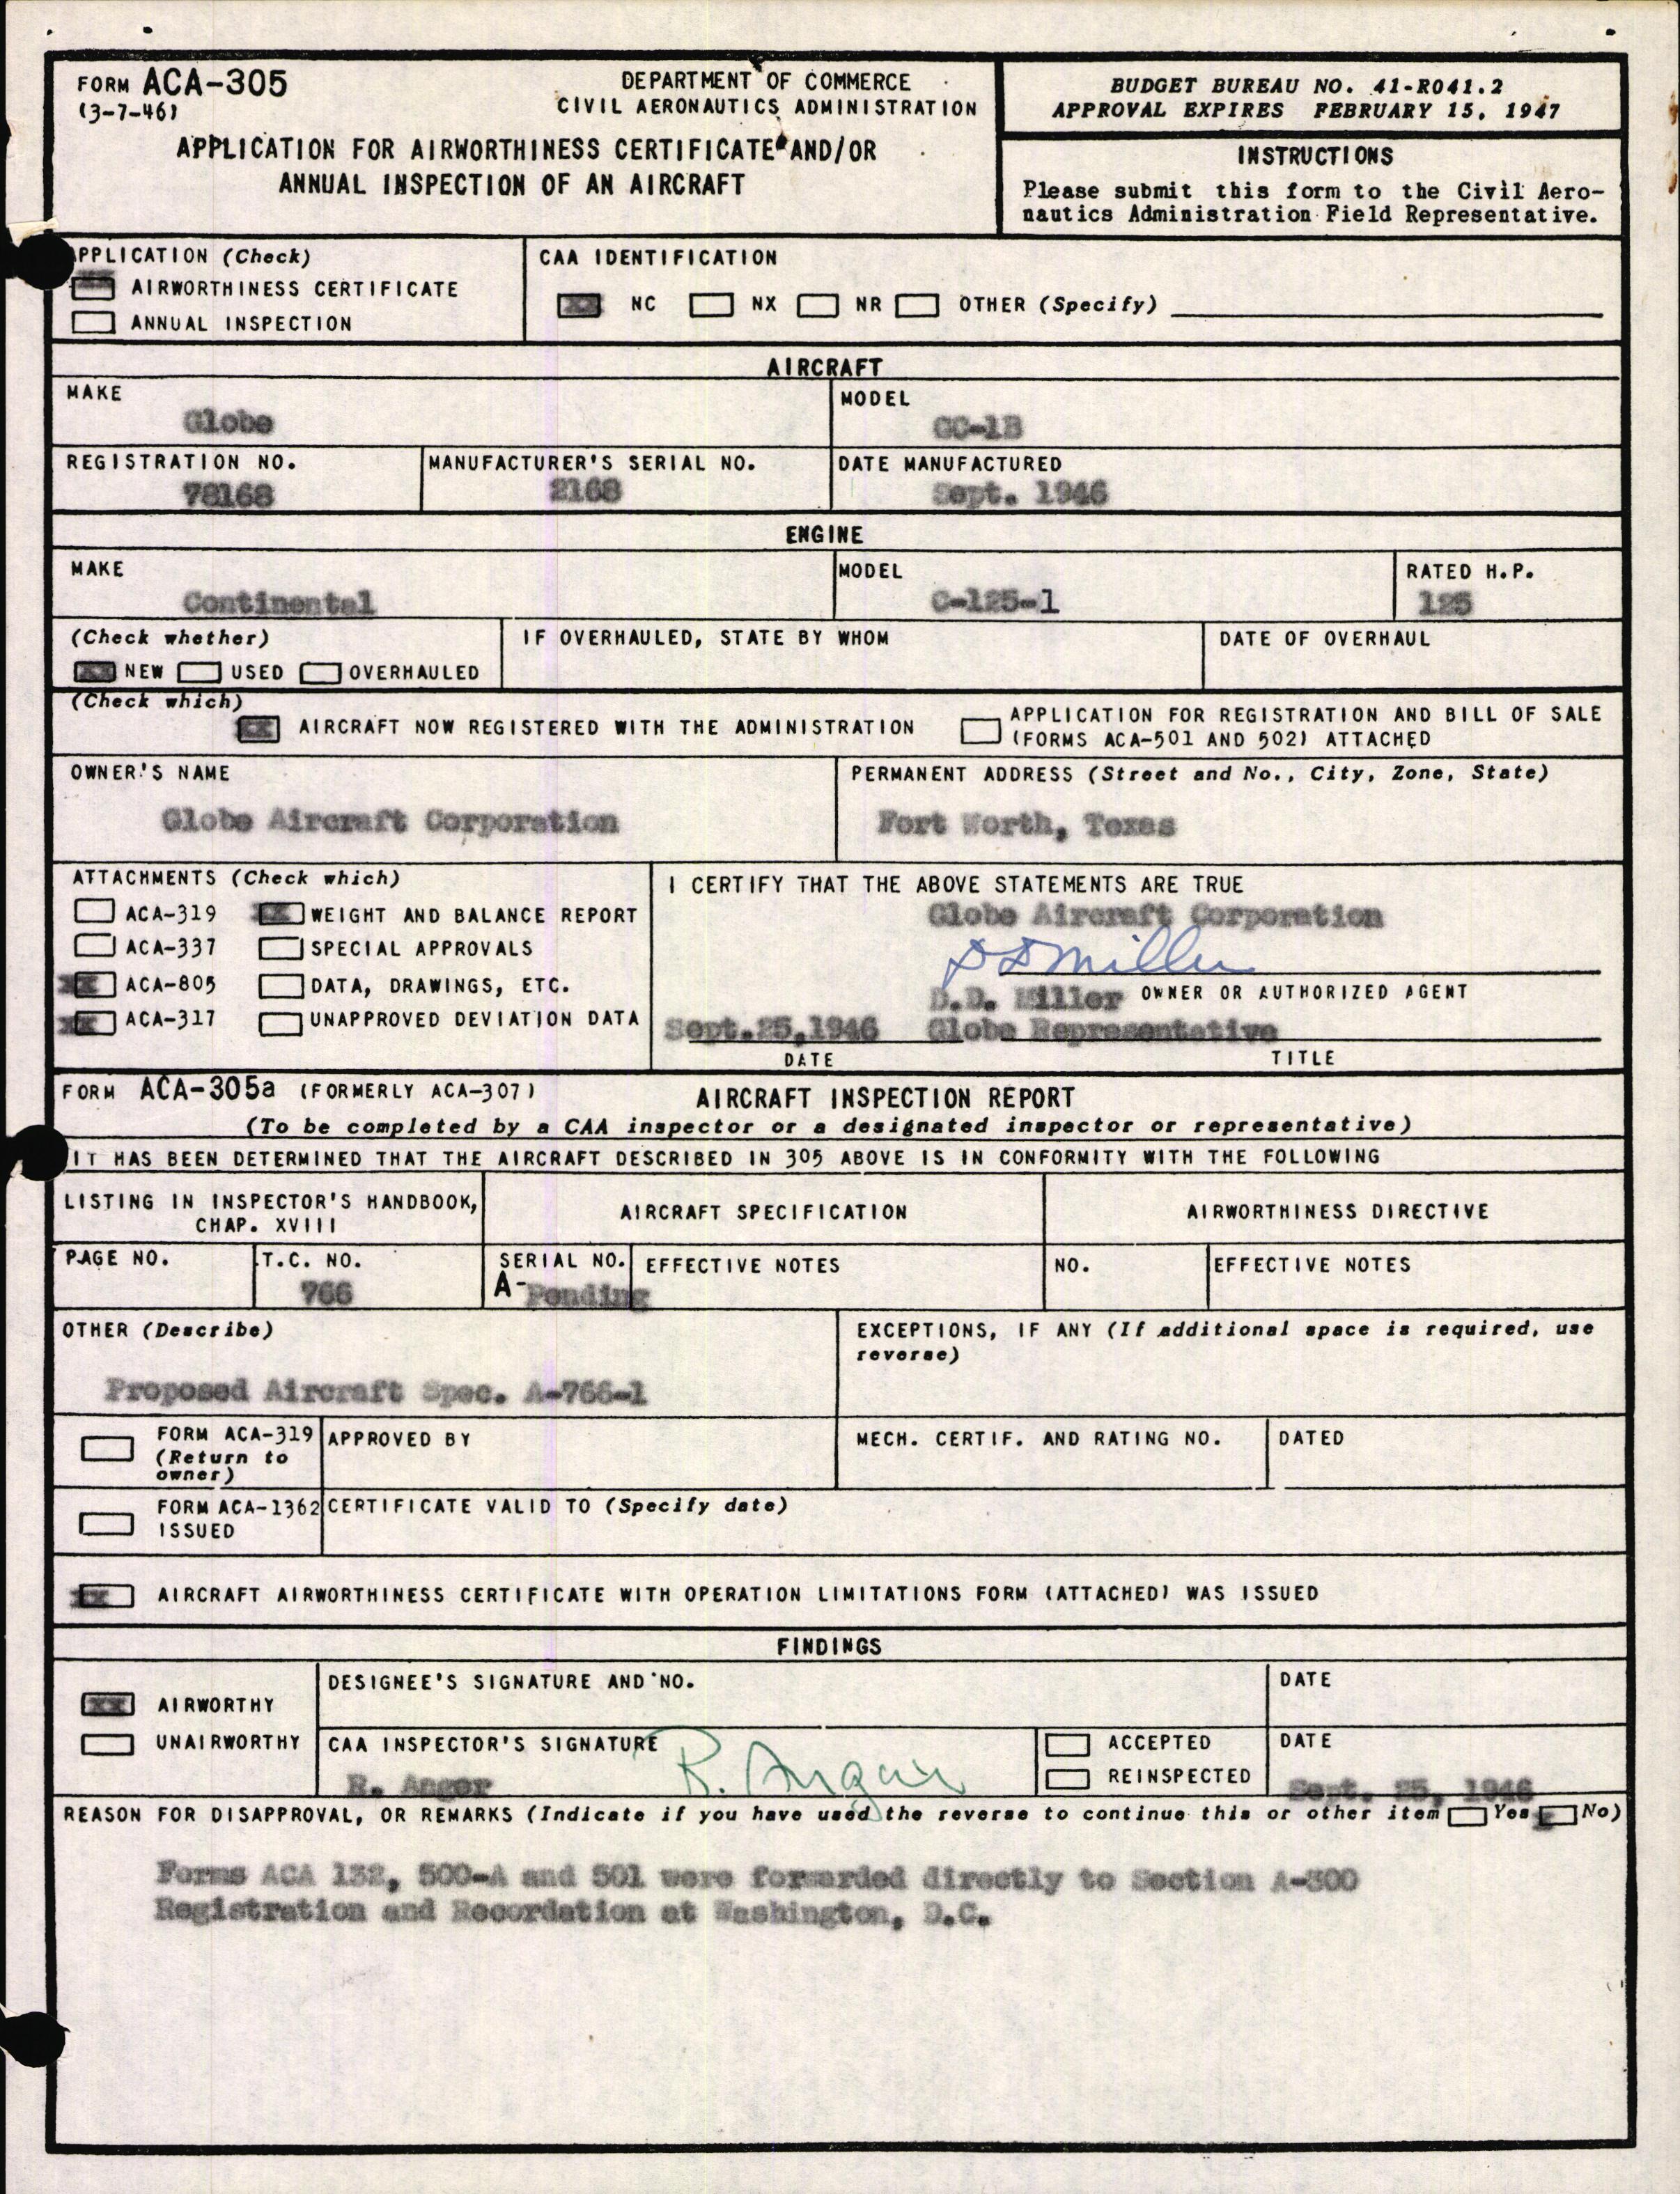 FORM ACA-305
(3-7-46)
DEPARTMENT OF COMMERCE
CIVIL AERONAUTICS ADMINISTRATION
APPLICATION FOR AIRWORTHINESS CERTIFICATE AND/OR
ANNUAL INSPECTION OF AN AIRCRAFT
BUDGET BUREAU NO. 41-R041.2
APPROVAL EXPIRES FEBRUARY 15, 1947
INSTRUCTIONS
Please submit this form to the Civil Aero-
nautics Administration Field Representative.
APPLICATION (Check)
AIRWORTHINESS CERTIFICATE
ANNUAL INSPECTION
CAA IDENTIFICATION
XX NC NX NR OTHER (Specify)
AIRCRAFT
MAKE
Globe
MODEL
GC-1B
REGISTRATION NO.
78168
MANUFACTURER'S SERIAL NO.
2168
DATE MANUFACTURED
Sept. 1946
ENGINE
MAKE
Continental
MODEL
C-125-1
RATED H.P.
125
(Check whether)
XX NEW USED OVERHAULED
IF OVERHAULED, STATE BY WHOM
DATE OF OVERHAUL
(Check which)
XX AIRCRAFT NOW REGISTERED WITH THE ADMINISTRATION
APPLICATION FOR REGISTRATION AND BILL OF SALE
(FORMS ACA-501 AND 502) ATTACHED
OWNER'S NAME
Globe Aircraft Corporation
PERMANENT ADDRESS (Street and No., City, Zone, State)
Fort Worth, Texas
ATTACHMENTS (Check which)
ACA-319 XX WEIGHT AND BALANCE REPORT
ACA-337 SPECIAL APPROVALS
XX ACA-805 DATA, DRAWINGS, ETC.
XX ACA-317 UNAPPROVED DEVIATION DATA
I CERTIFY THAT THE ABOVE STATEMENTS ARE TRUE
Globe Aircraft Corporation
DD Miller
D.D. Miller OWNER OR AUTHORIZED AGENT
Sept.25,1946 Globe Representative
DATE TITLE
FORM ACA-305a (FORMERLY ACA-307) AIRCRAFT INSPECTION REPORT
(To be completed by a CAA inspector or a designated inspector or representative)
IT HAS BEEN DETERMINED THAT THE AIRCRAFT DESCRIBED IN 305 ABOVE IS IN CONFORMITY WITH THE FOLLOWING
LISTING IN INSPECTOR'S HANDBOOK,
CHAP. XVIII
AIRCRAFT SPECIFICATION
AIRWORTHINESS DIRECTIVE
PAGE NO.
T.C. NO.
766
SERIAL NO.
A-Pending
EFFECTIVE NOTES
NO.
EFFECTIVE NOTES
OTHER (Describe)
Proposed Aircraft Spec. A-766-1
EXCEPTIONS, IF ANY (If additional space is required, use
reverse)
FORM ACA-319
(Return to
owner)
APPROVED BY
MECH. CERTIF. AND RATING NO.
DATED
FORM ACA-1362
ISSUED
CERTIFICATE VALID TO (Specify date)
XX AIRCRAFT AIRWORTHINESS CERTIFICATE WITH OPERATION LIMITATIONS FORM (ATTACHED) WAS ISSUED
FINDINGS
XX AIRWORTHY
UNAIRWORTHY
DESIGNEE'S SIGNATURE AND NO.
DATE
CAA INSPECTOR'S SIGNATURE
R. Anger
R. Anger
ACCEPTED
REINSPECTED
DATE
Sept. 25, 1946
REASON FOR DISAPPROVAL, OR REMARKS (Indicate if you have used the reverse to continue this or other item Yes No)
Forms ACA 132, 500-A and 501 were forwarded directly to Section A-300
Registration and Recordation at Washington, D.C.